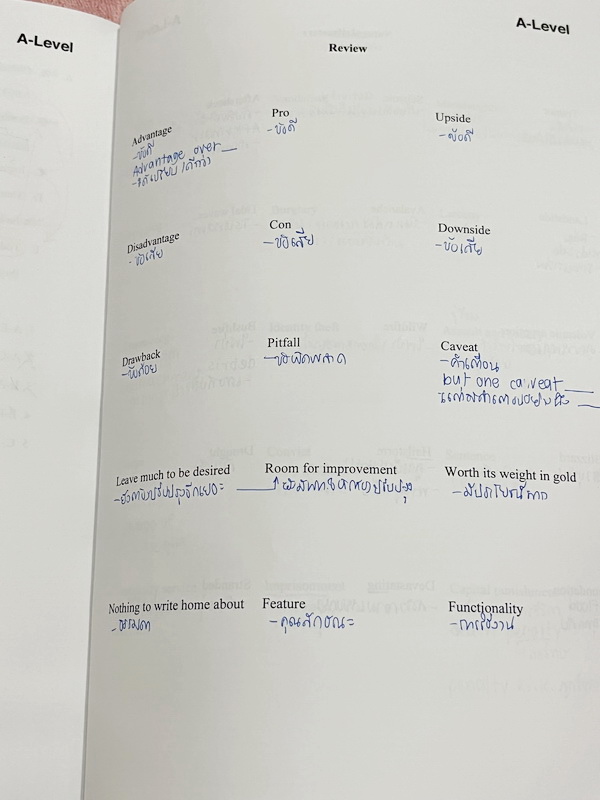 A-Level
A-Level
Review
Advantage
-ข้อดี
Advantage over
-ได้เปรียบ/ดีกว่า
Pro
-ข้อดี
Upside
-ข้อดี
Disadvantage
-ข้อเสีย
Con
-ข้อเสีย
Downside
-ข้อเสีย
Drawback
-ข้อด้อย
Pitfall
-ข้อผิดพลาด
Caveat
-คำเตือน
but one caveat
Leave much to be desired
Room for improvement
Worth its weight in gold
-มีประโยชน์มาก
Nothing to write home about
-ธรรมดา
Feature
-คุณลักษณะ
Functionality
-การใช้งาน